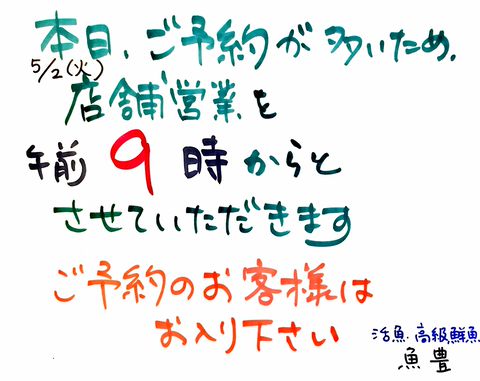 本日、ご予約が多いため、
5/2(火)
店舗営業を
午前9時からと
させていただきます
ご予約のお客様は
お入り下さい
活魚・高級鮮魚
魚豊